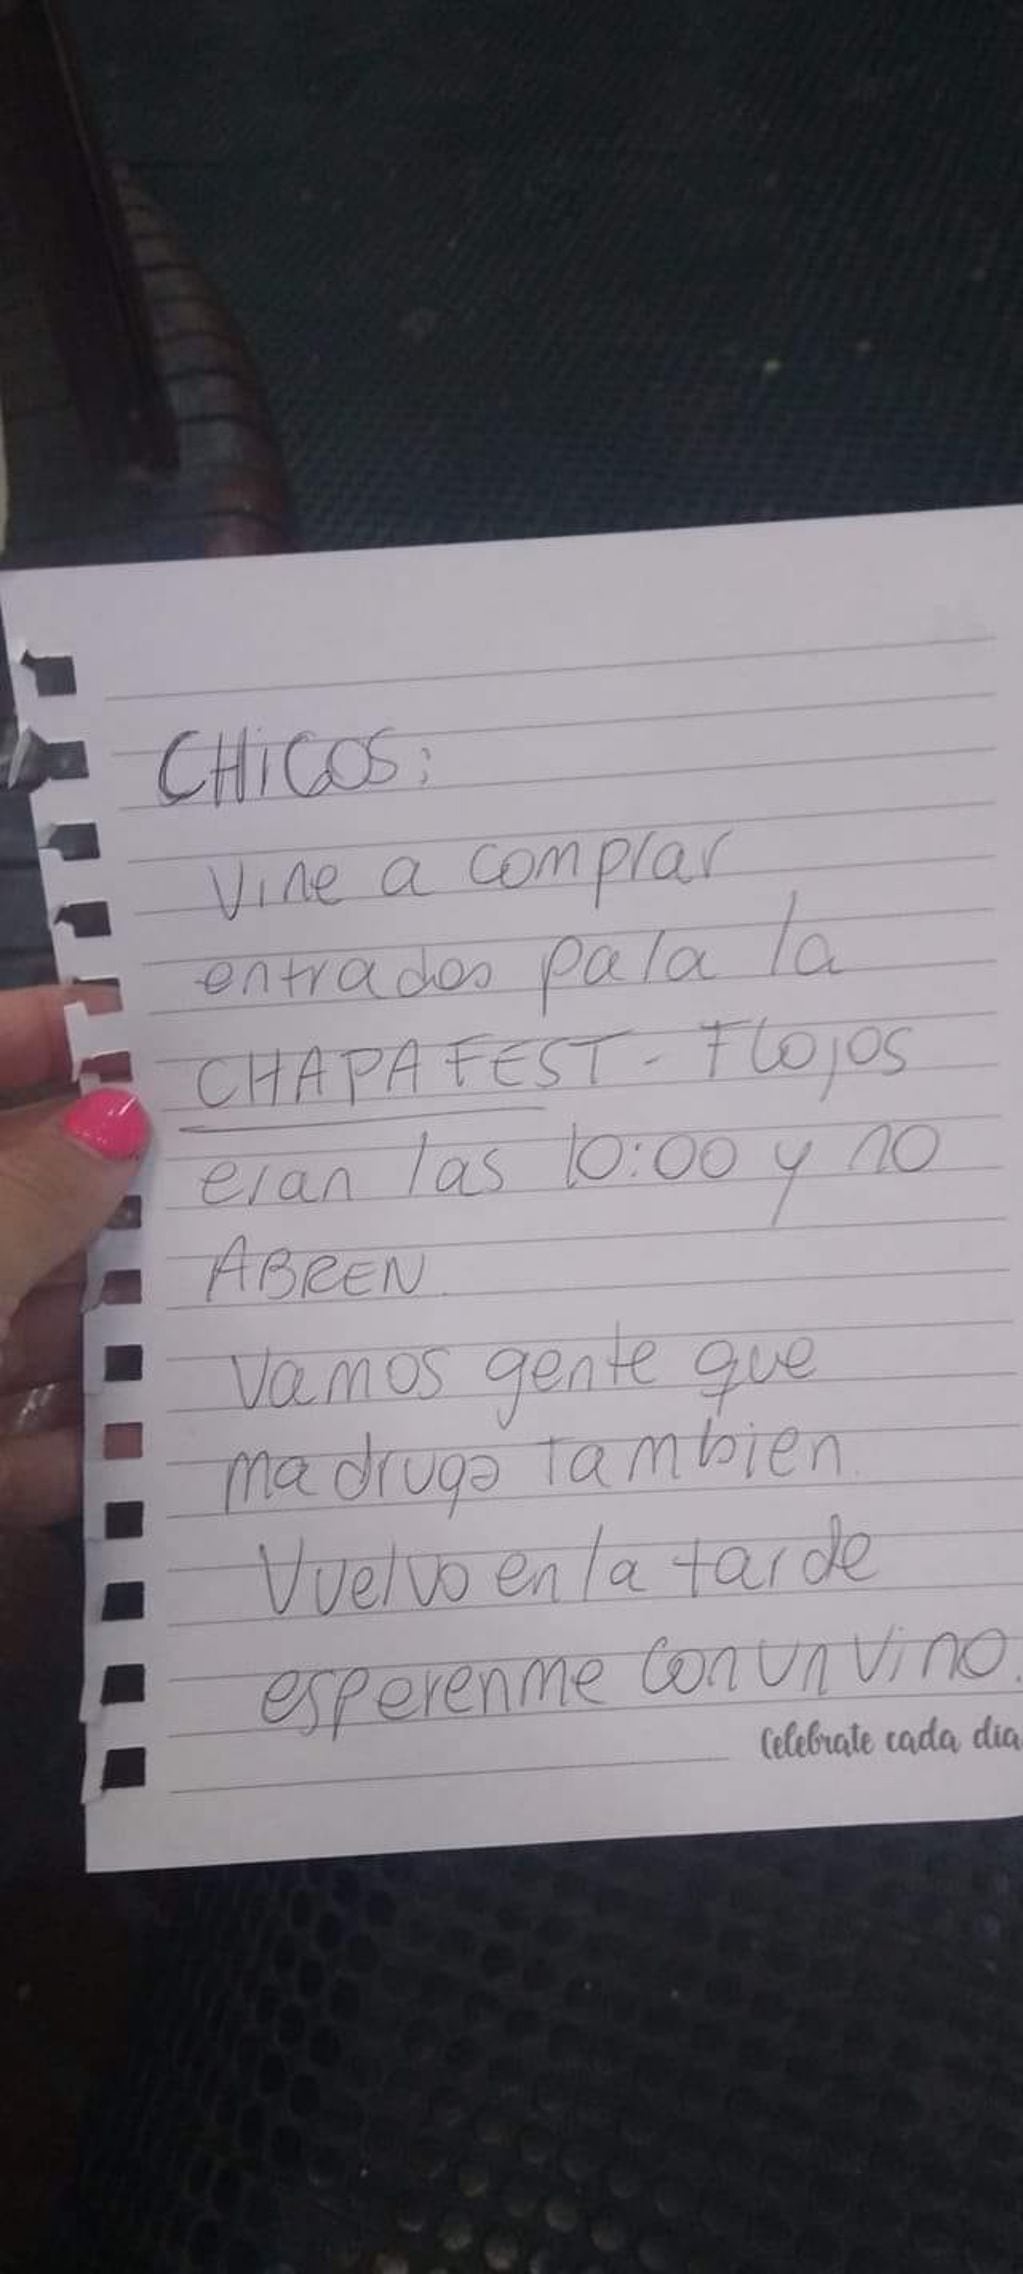 CHICOS:
Vine a comprar
entradas para la
CHAPA FEST - Flojos
eran las 10:00 y no
ABREN.
Vamos gente que
madrugo tambien.
Vuelvo en la tarde
esperenme con un vino.
Celebrate cada dia